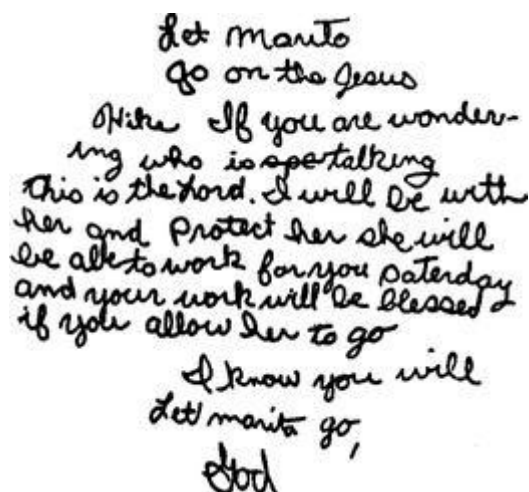 Let Marito
go on the Jesus
Hike If you are wonder-
ing who is spe talking
this is the Lord. I will be with
her and Protect her she will
be able to work for you Saterday
and your work will be blessed
if you allow her to go
I know you will
Let marita go,
God